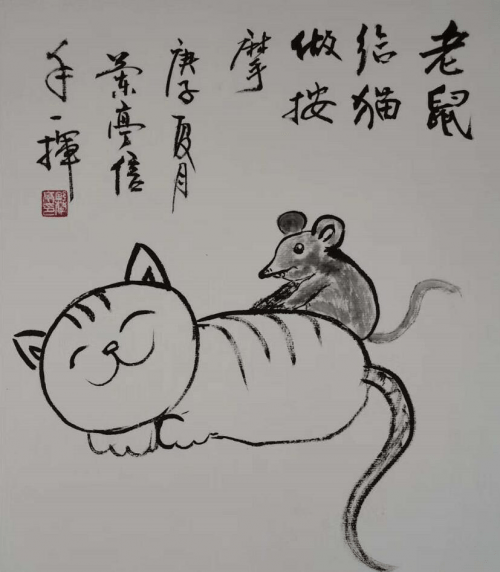 老鼠
给猫
做按
摩
庚子夏月
蘭亭信
手一揮